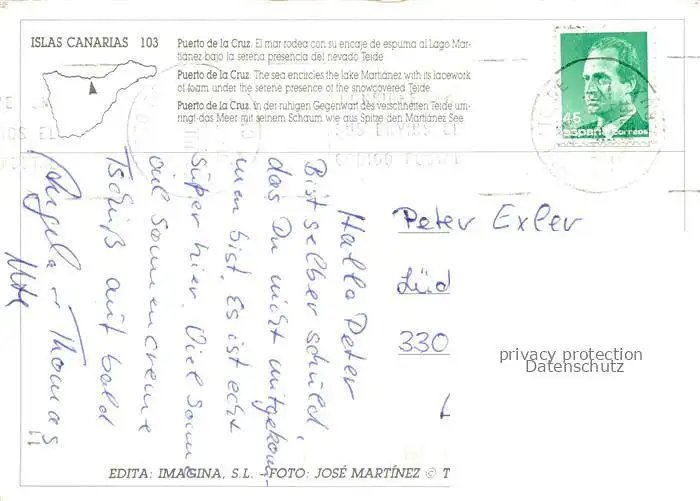 ISLAS CANARIAS 103
Puerto de la Cruz. El mar rodea con su encaje de espuma al Lago Mar-
tiánez bajo la serena presencia del nevado Teide
Puerto de la Cruz. The sea encircles the lake Martiánez with its lacework
of foam under the serene presence of the snowcovered Teide.
Puerto de la Cruz. In der ruhigen Gegenwart des verschneiten Teide um-
ringt das Meer mit seinem Schaum wie aus Spitze den Martiánez See.
45
España correos
Hallo Peter
Bist selber schuld,
das Du nicht mitgekom-
men bist. Es ist echt
süper hier. Viel Sonne
viel Sonnencreme
Tschüß auf bald
Angela + Thomas
Ute
Peter Exler
Lüd
330
privacy protection
Datenschutz
EDITA: IMAGINA, S.L. - FOTO: JOSÉ MARTÍNEZ © T